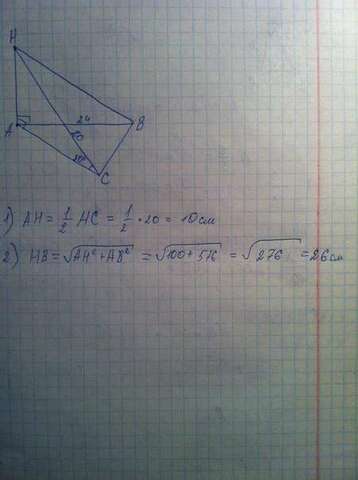 H
A
24
B
20
30°
C
1) AH = 1/2 HC = 1/2 · 20 = 10 см
2) HB = √AH² + AB² = √100 + 576 = √276 = 26 см